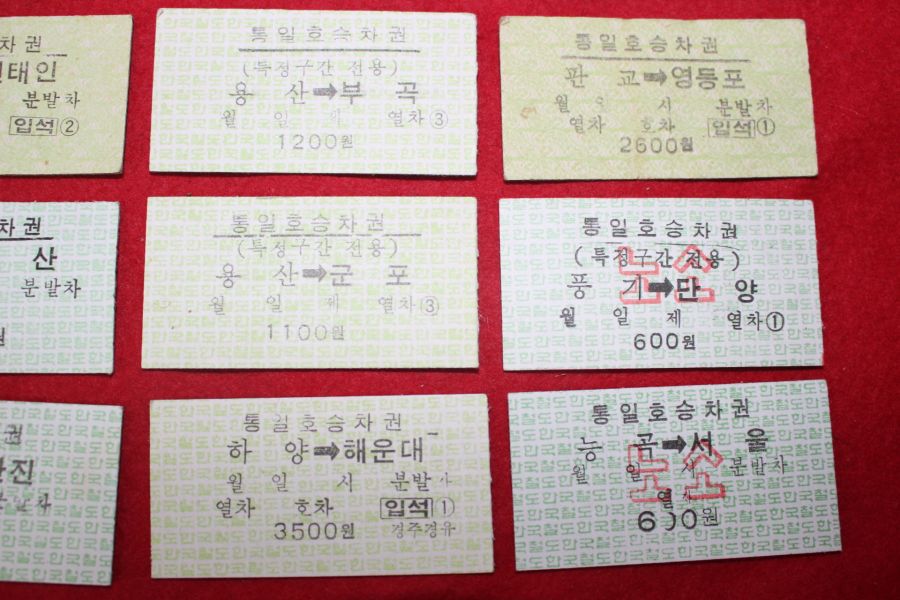 차권
태인
분발차
입석 ②
통일호승차권
(특정구간 전용)
용 산➡부 곡
월 일 제 열차③
1200원
통일호승차권
판 교➡영등포
월 시 분발차
열차 호차 입석①
2600원
차권
산
분발차
원
통일호승차권
(특정구간 전용)
용 산➡군 포
월 일 제 열차③
1100원
통일호승차권
(특정구간 전용)
풍 기➡단 양
노소
월 일 제 열차①
600원
권
진
통일호승차권
하 양➡해운대
월 일 시 분발
열차 호차 입석①
3500원 경주경유
통일호승차권
능 곡➡서 울
노소
월 일 시 분발차
열
600원